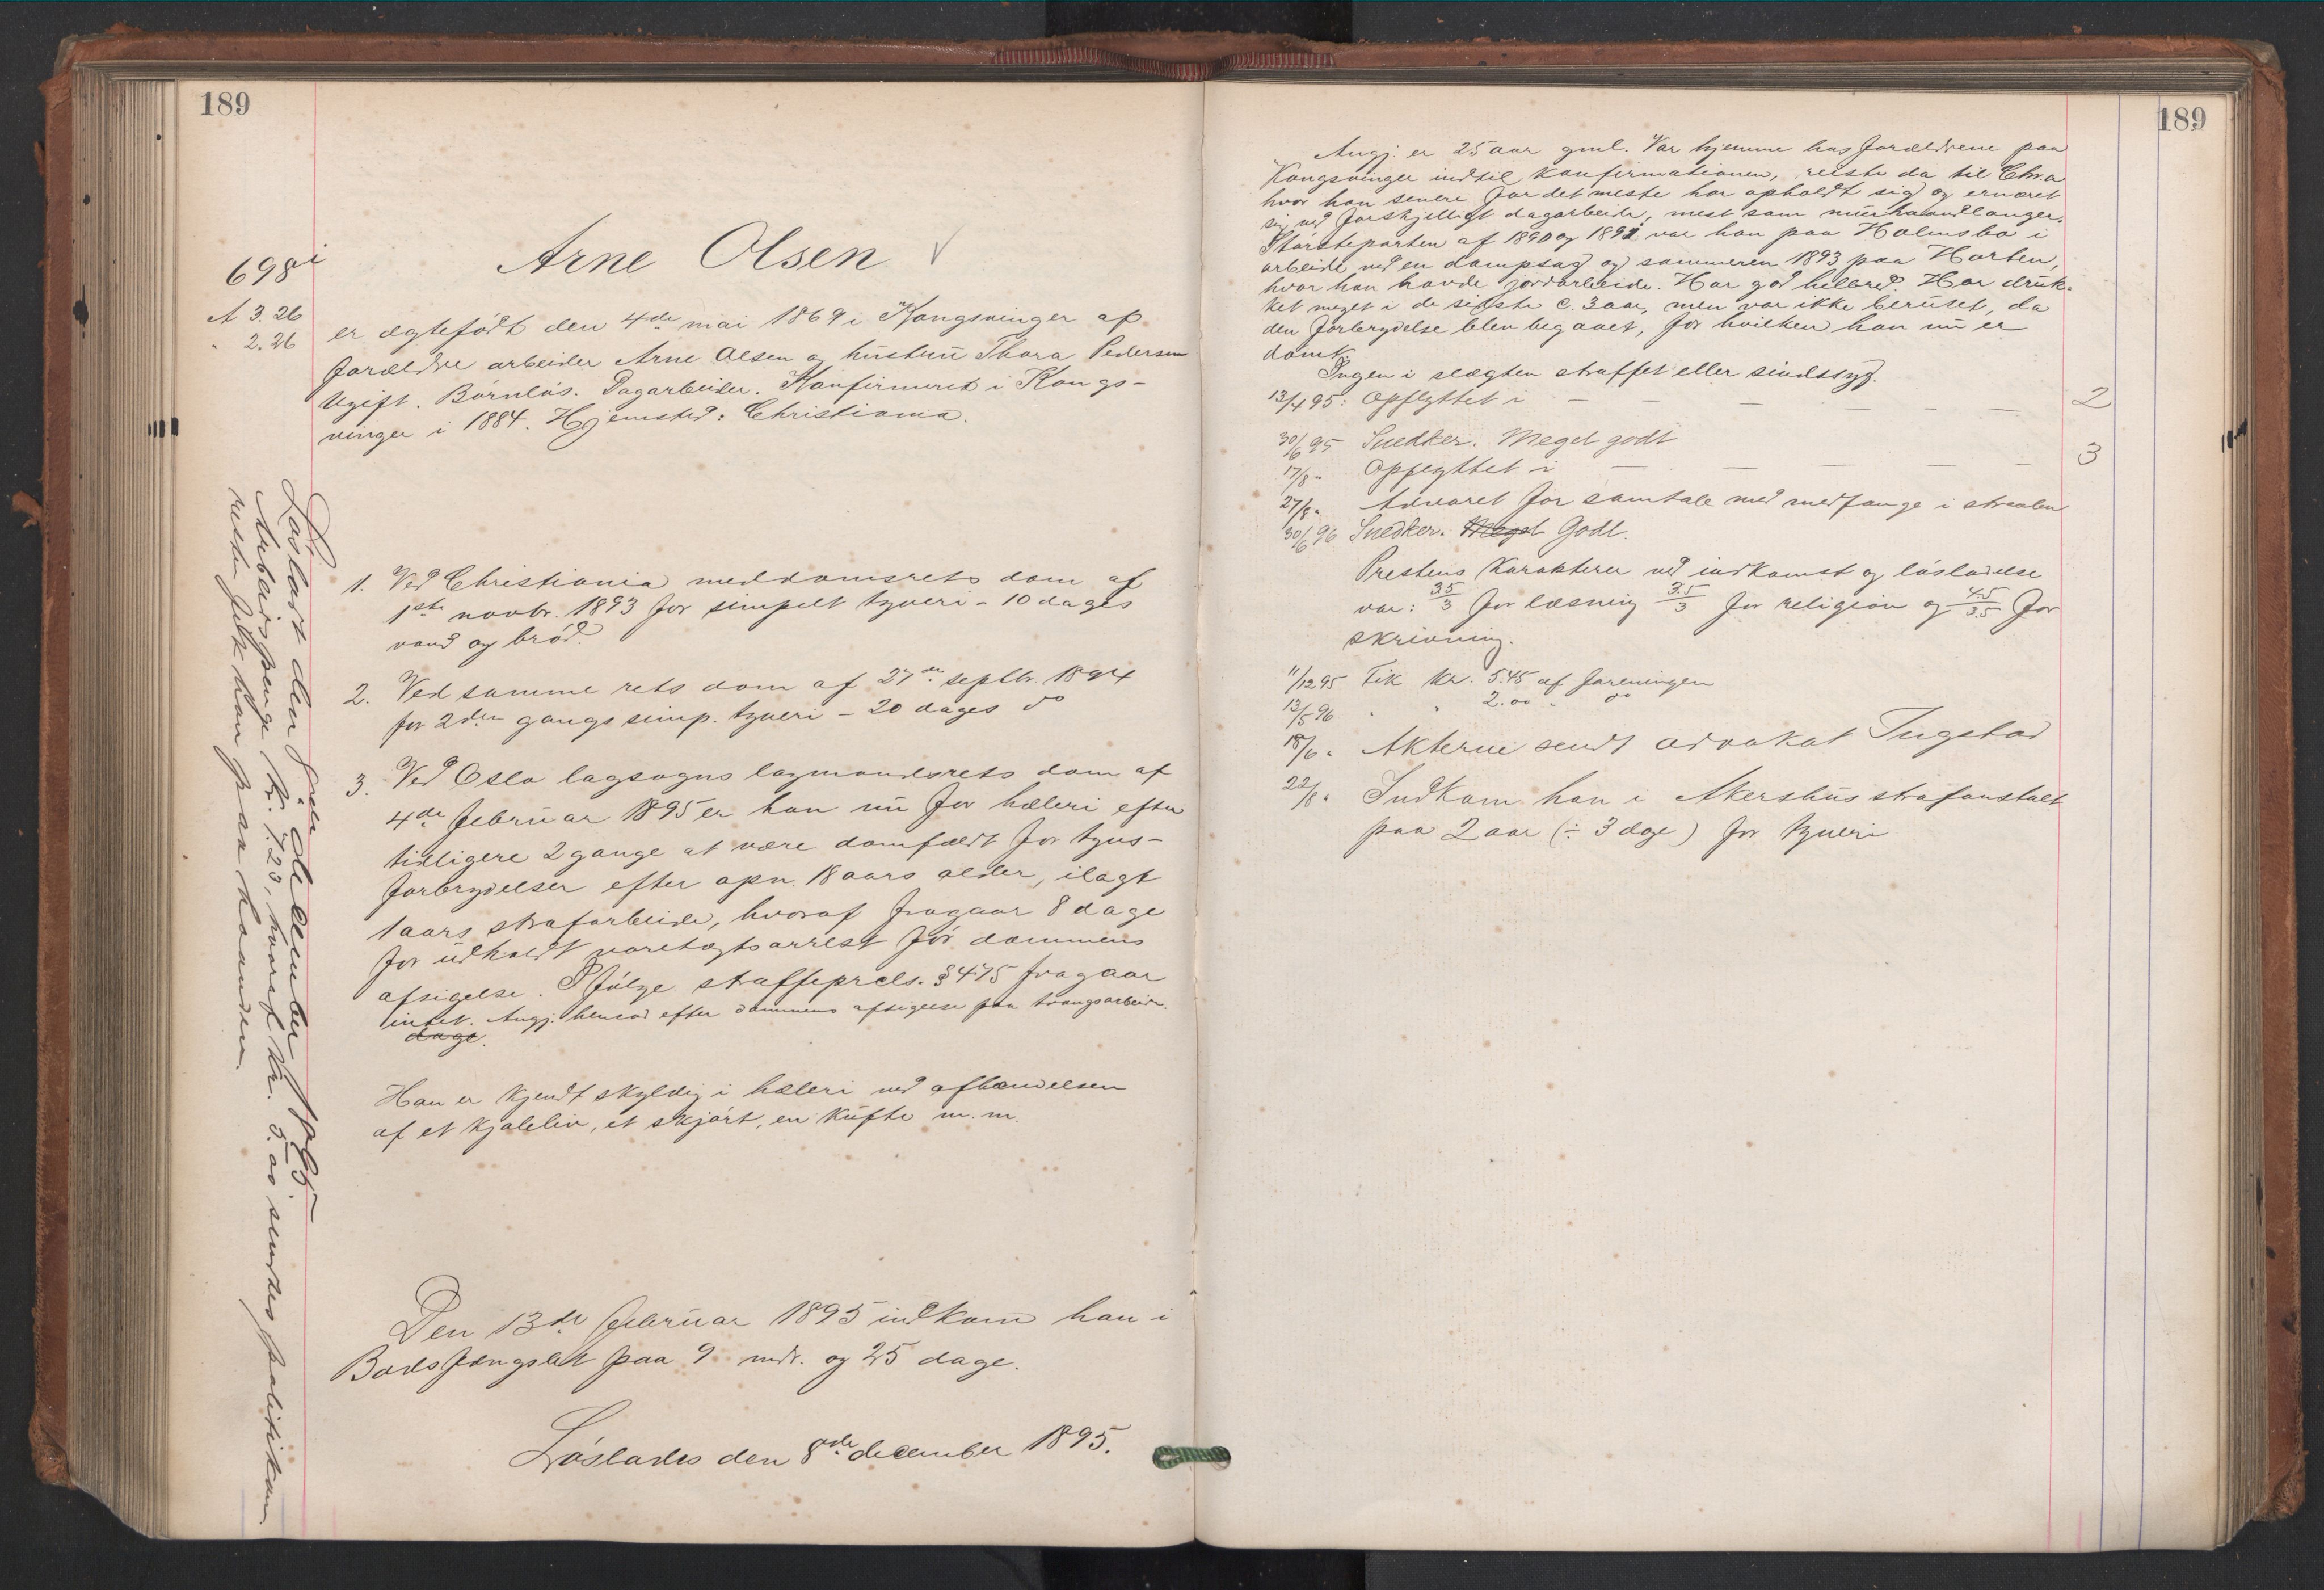 189
698 i
A 3. 26
" 2. 26
Arne Olsen √
er ægtefödt den 4de mai 1869 i Kongsvinger af
forældre arbeider Arne Olsen og hustru Thora Pedersen
Ugift. Börnlös. Dagarbeider. Konfirmeret i Kongs-
vinger i 1884. Hjemsted: Christiania.
1. Ved Christiania meddomsrets dom af
1ste novbr. 1893 for simpelt tyveri - 10 dages
vand og bröd.
2. Ved samme rets dom af 27de septbr. 1894
for 2den gangs simp. tyveri - 20 dages do
3. Ved Oslo lagsogns lagmandsrets dom af
4de februar 1895 er han nu for hæleri efter
tidligere 2 gange at være domfældt for tyvs-
forbrydelser efter opn. 18 aars alder, ilagt
1 aars strafarbeide, hvoraf fragaar 8 dage
for udholdt varetægtsarrest för dommens
afsigelse. Ifölge straffeprcls. § 475 fragaar
intet. Angj. hensad efter dommens afsigelse paa tvangsarbeide.
dage.
Han er kjendt skyldig i hæleri ved afhændelsen
af et kjoleliv, et skjört, en küfte m. m.
Den 13de februar 1895 indkom han i
Bodsfængslet paa 9 mdr. og 25 dage.
Löslades den 8de december 1895.
Lösladt den 8de december 1895.
Arbeidspenge kr. 7.23, hvoraf kr. 5.00 sendtes politikam
resten fik han paa haanden.
189
Angj. er 25 aar gml. Var hjemme hos forældrene paa
Kongsvinger indtil konfirmationen, reiste da til Chr.a
hvor han senere for det meste har opholdt sig og ernæret
sig ved forskjelligt dagarbeide, mest som murhaandlanger.
Störsteparten af 1890 og 1891 var han paa Holmsbo i
arbeide ved en dampsag og sommeren 1893 paa Horten,
hvor han havde jordarbeide. Har god helbred. Har druk-
ket meget i de sidste c. 3 aar, men var ikke beruset, da
den forbrydelse blev begaaet, for hvilken han nu er
dömt.
Ingen i slægten straffet eller sindssyg.
13/4 95: Opflyttet i — — — — — — 2
30/6 95 Snedker. Meget godt
17/8 " Opflyttet i — — — — — 3
27/8 " Advaret for samtale med medfange i straalen
30/6 96 Snedker. Meget Godt.
Prestens karakterer ved indkomst og lösladelse
var: 3.5/3 for læsning 3.5/3 for religion og 4.5/3.5 for
skrivning.
11/12 95 Fik kr. 5.45 af foreningen
13/5 96 " " 2.00 " do
18/6 " Akterne sendt advokat Ingstad
22/8 " Indkom han i Akershus strafanstalt
paa 2 aar (÷ 3 dage) for tyveri